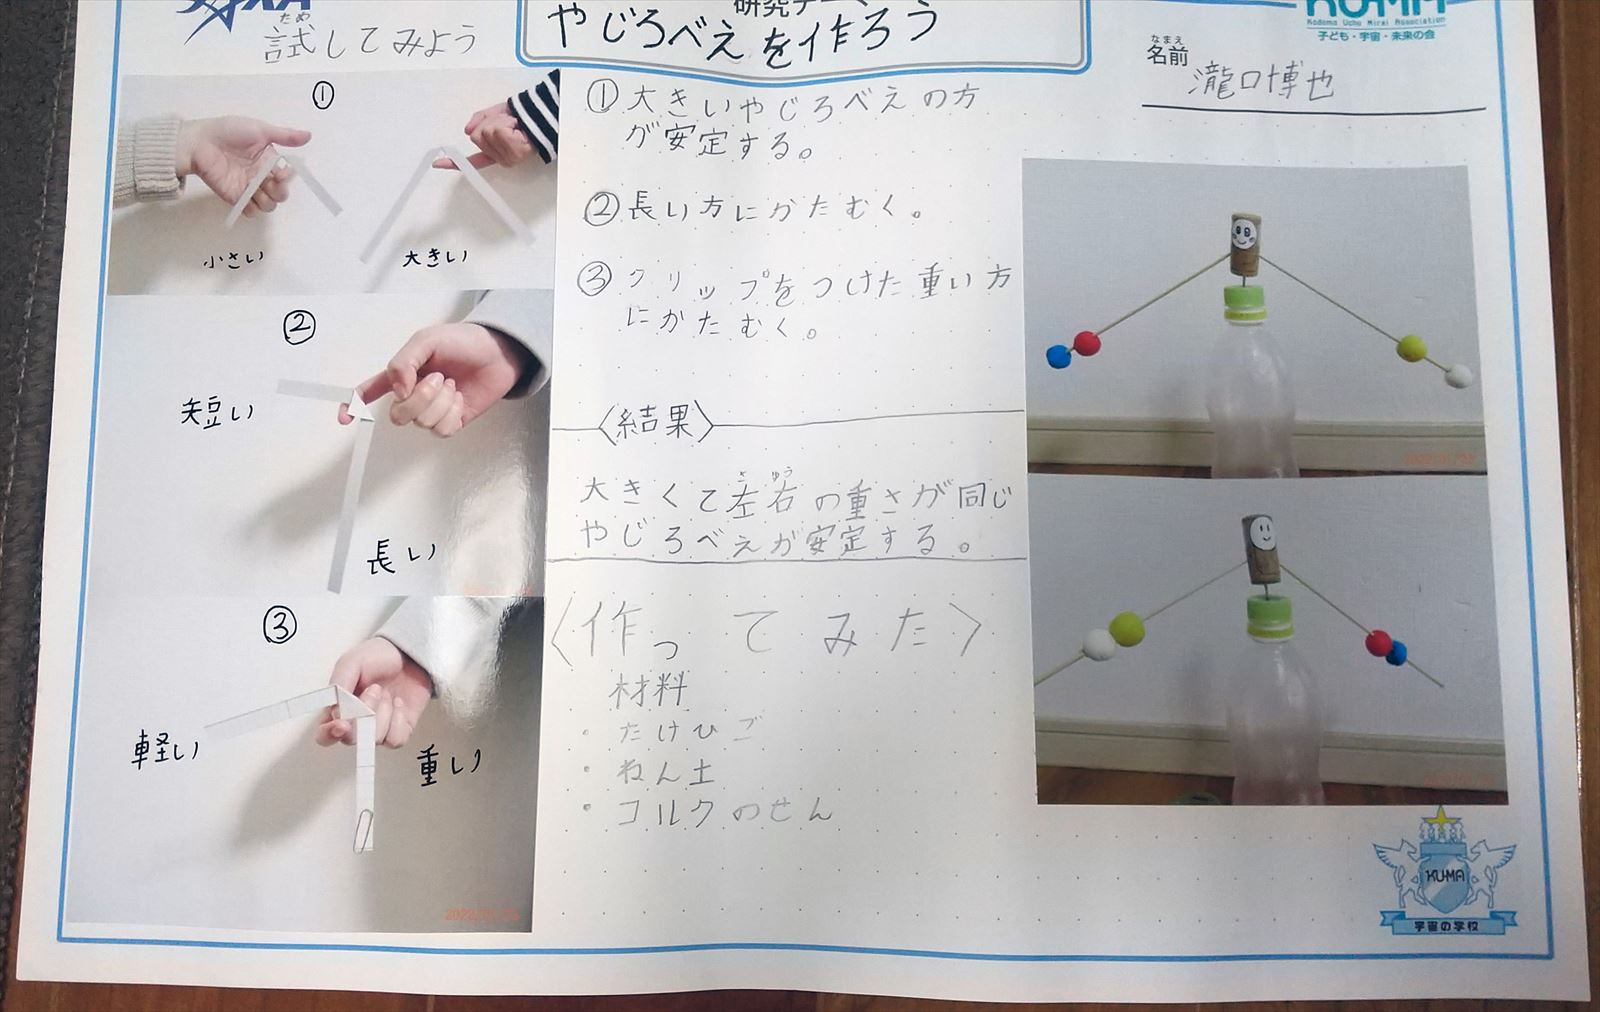 試してみよう
ため
研究テーマ
やじろべえを作ろう
KUMA
Kodomo Uchu Mirai Association
子ども・宇宙・未来の会
なまえ
名前
瀧口博也
①
小さい
大きい
②
短い
長い
③
軽い
重い
①大きいやじろべえの方
が安定する。
②長い方にかたむく。
③クリップをつけた重い方
にかたむく。
〈結果〉
さ ゆう
大きくて左右の重さが同じ
やじろべえが安定する。
〈作ってみた〉
材料
・たけひご
・ねん土
・コルクのせん
KUMA
宇宙の学校